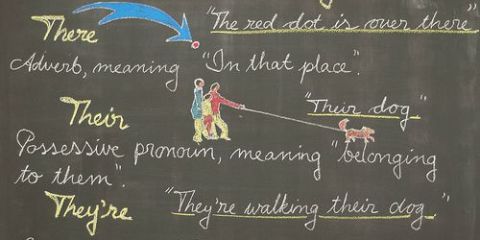 There "The red dot is over there"
Adverb, meaning "In that place".
Their "Their dog"
Possessive pronoun, meaning "belonging
to them".
They're "They're walking their dog"